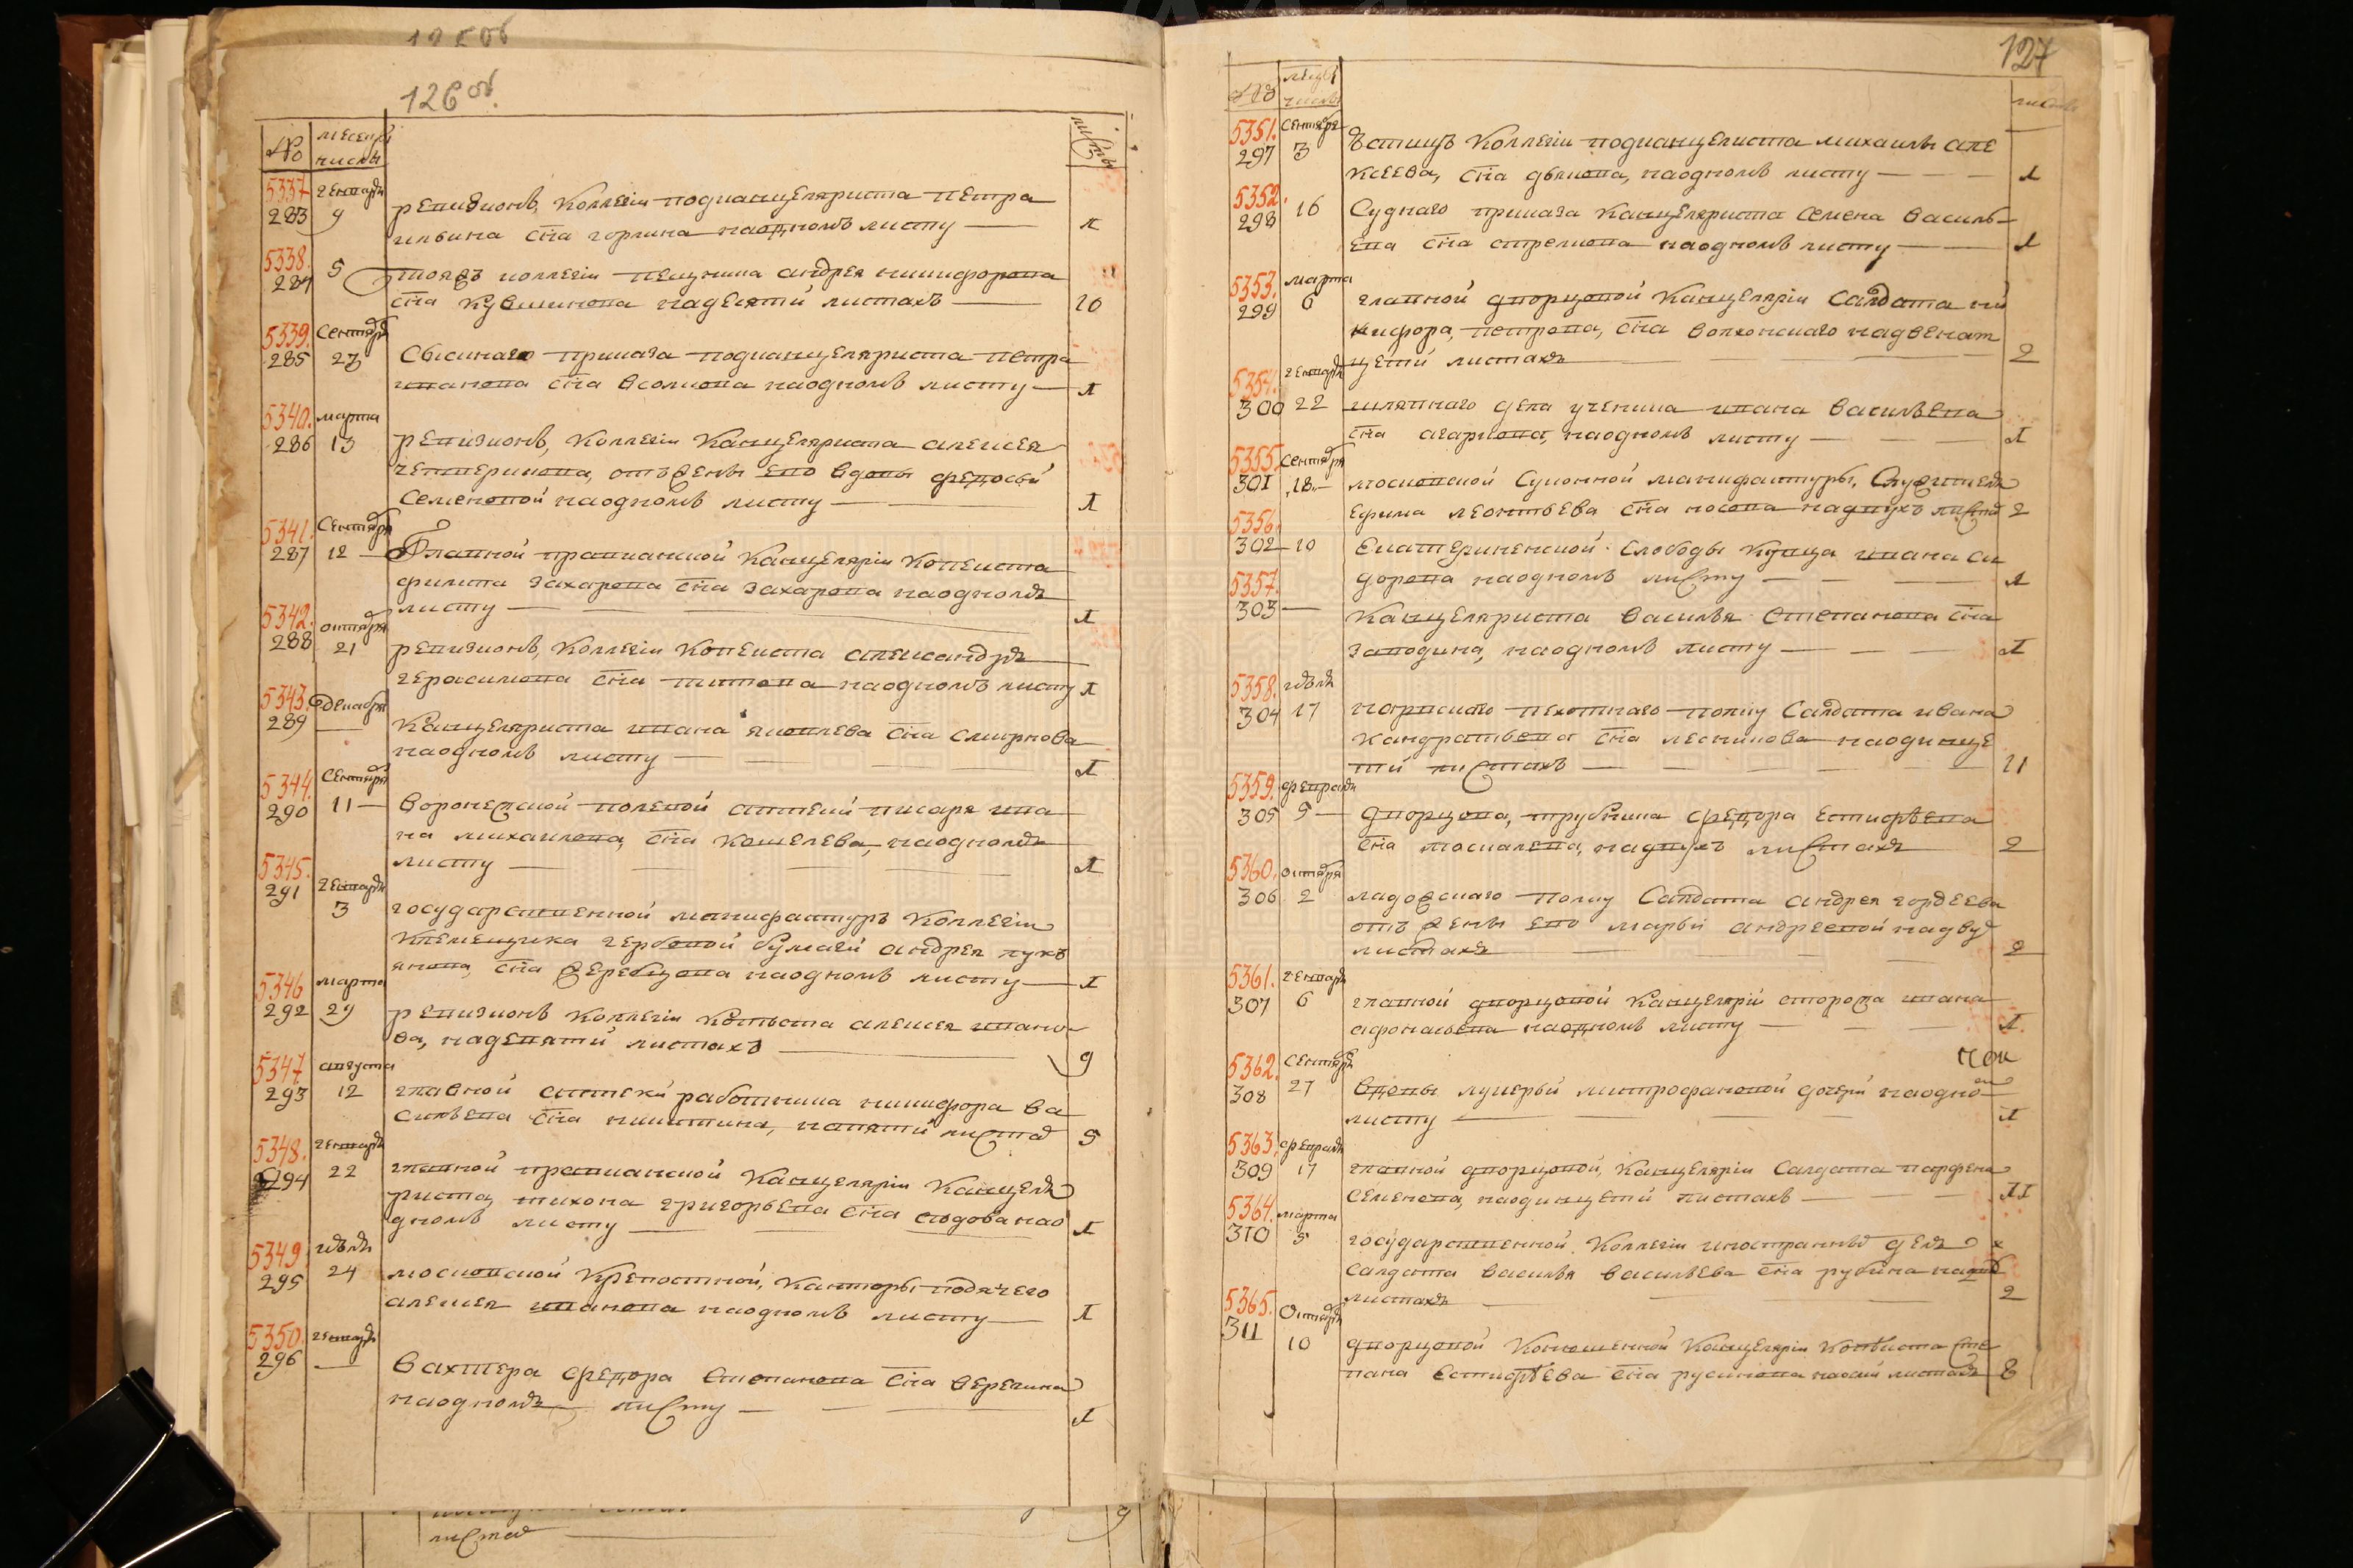 126 об.
№ месецы числы листы
5337. генваря
283 9 ревизионъ, коллегіи подканцеляриста петра
ильина сна горлина наодномъ листу — 1
5338.
284 5 тояжъ коллегіи пещика андрея никифорова
сна кувшинова надесяти листахъ — 10
5339. Сентября
285 23 Сыскнаго приказа подканцеляриста петра
иванова сна наодномъ листу — 1
5340. марта
286 13 ревизионъ, коллегіи канцеляриста алексея
четверикова, отъ жены ево вдовы федосьи
семеновой наодномъ листу — 1
5341. Сентября
287 12 Главной правианской канцеляріи копеиста
филипа захарова сна захарова наодномъ
листу — 1
5342. октября
288 21 ревизионъ, коллегіи копеиста александра
герасимова сна титова наодномъ листу 1
5343. декабря
289 — канцеляриста ивана яковлева сна смирнова
наодномъ листу — 1
5344. Сентября
290 11 — воронежской полевой аптеки писаря ива
на михаилова, сна кошелева, наодномъ
листу — 1
5345. генваря
291 3 государственной манифактуръ коллегіи
клеменщика гербовой бумаги андрея лукъ
янова, сна жеребцова наодномъ листу — 1
5346 марта
292 29 ревизионъ коллегіи копѣиста алексея ивано
ва, надевяти листахъ — 9
5347 августа
293 12 главной аптеки работника никифора ва
сильева сна никитина, напяти листахъ 5
5348. генваря
294 22 главной правианской канцеляріи канцеля
риста, тихона григорьева сна седова нао
дномъ листу — 1
5349. июля
295 24 московской крепостной, канторы подячего
алексея иванова наодномъ листу — 1
5350. генваря
296 — вахтера федора степанова сна верегина
наодномъ листу — 1
127
№ месецы числы листы
5351. Сентября
297 3 Юстицъ коллегіи подканцеляриста михаилы але
ксеева, сна дьякова, наодномъ листу — 1
5352.
298 16 Суднаго приказа канцеляриста семена василь
ева сна стрелкова наодномъ листу — 1
5353. марта
299 6 главной дворцовой канцеляріи салдата ни
кифора, петрова, сна волконскаго надвенат
цети листахъ — 2
5354. генваря
300 22 шляпнаго дела ученика ивана васильева
сна агаркова, наодномъ листу — 1
5355. Сентября
301 18 — московской суконной манифактуры, служителя
ефима леонтьева сна носова надвухъ листах 2
5356.
302 10 Екатерининской слободы купца ивана си
дорова наодномъ листу — 1
5357.
303 — канцеляриста василья степанова сна
заводина, наодномъ листу — 1
5358. июля
304 17 нарвскаго пехотнаго полку салдата ивана
кандратьева сна лесникова наодинаце
ти листахъ — 11
5359. февраля
305 5 — дворцова, трубника федора естифѣева
сна москалева, надвухъ листахъ 2
5360. октября
306 2 ладожскаго полку салдата андрея гордеева
отъ жены ево марьи андреевой надвух
листахъ — 2
5361. генваря
307 6 главной дворцовой канцеляріи сторожа ивана
афонасьева наодномъ листу — 1
5362. Сентября
308 27 вдовы лукерьи митрофановой дочери наодном
листу — 1
5363. февраля
309 17 главной дворцовой, канцеляріи салдата парфена
семенова, наодинцети листахъ — 11
5364. марта
310 5 государственной коллегіи иностранныхъ делъ
салдата василья васильева сна рубина надвух
листахъ — 2
5365. Октября
311 10 дворцовой конюшенной канцеляріи копѣиста сте
пана естифѣева сна русинова наосми листахъ 8
листах — 9